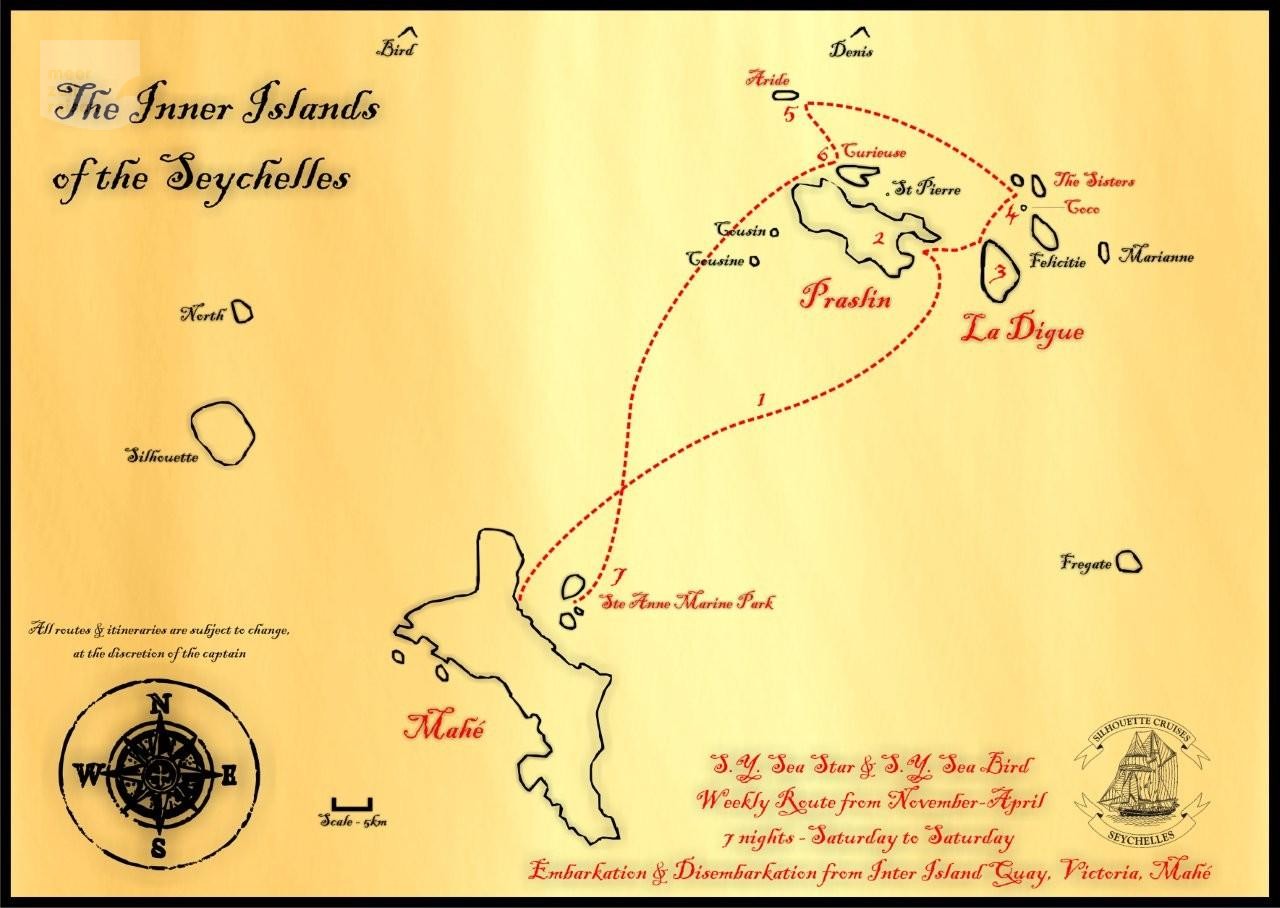 Bird
Denis
The Inner Islands
of the Seychelles
Aride
5
6
Curieuse
St Pierre
The Sisters
4
Coco
Cousin
Cousine
2
3
Felicitie
Marianne
Praslin
La Digue
North
1
Silhouette
Fregate
7
Ste Anne Marine Park
All routes & itineraries are subject to change,
at the discretion of the captain
N
W
E
S
Mahé
Scale - 5km
S.Y. Sea Star & S.Y. Sea Bird
Weekly Route from November-April
7 nights - Saturday to Saturday
Embarkation & Disembarkation from Inter Island Quay, Victoria, Mahé
SILHOUETTE CRUISES
SEYCHELLES